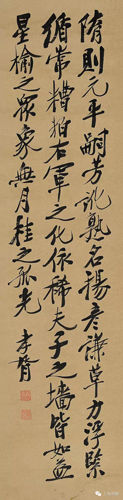 隋則元平嗣芳沈熟名揚彥謙草力浮緊
循常糟粕右軍之化依稀夫子之墻皆如益
星榆之眾象無月桂之孤光 李膺